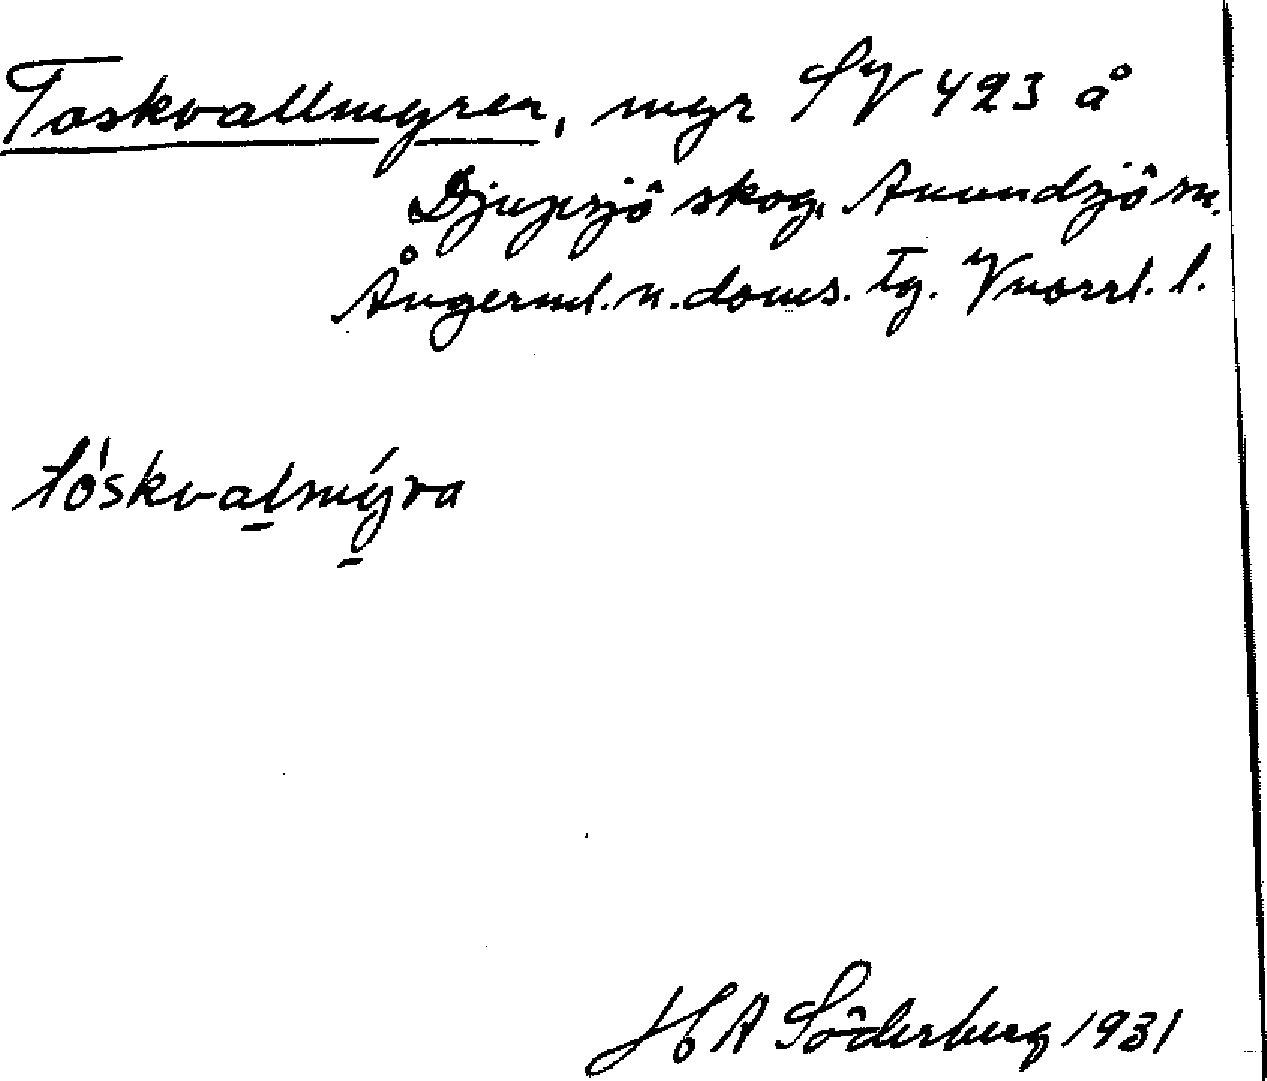 Toskvallmyren, myr SV 423 å
Djupsjö skog, Anundsjö sn.
Ångerml. n. doms. tg. Vnorrl. l.
tóskvalmýra
H A Söderberg 1931